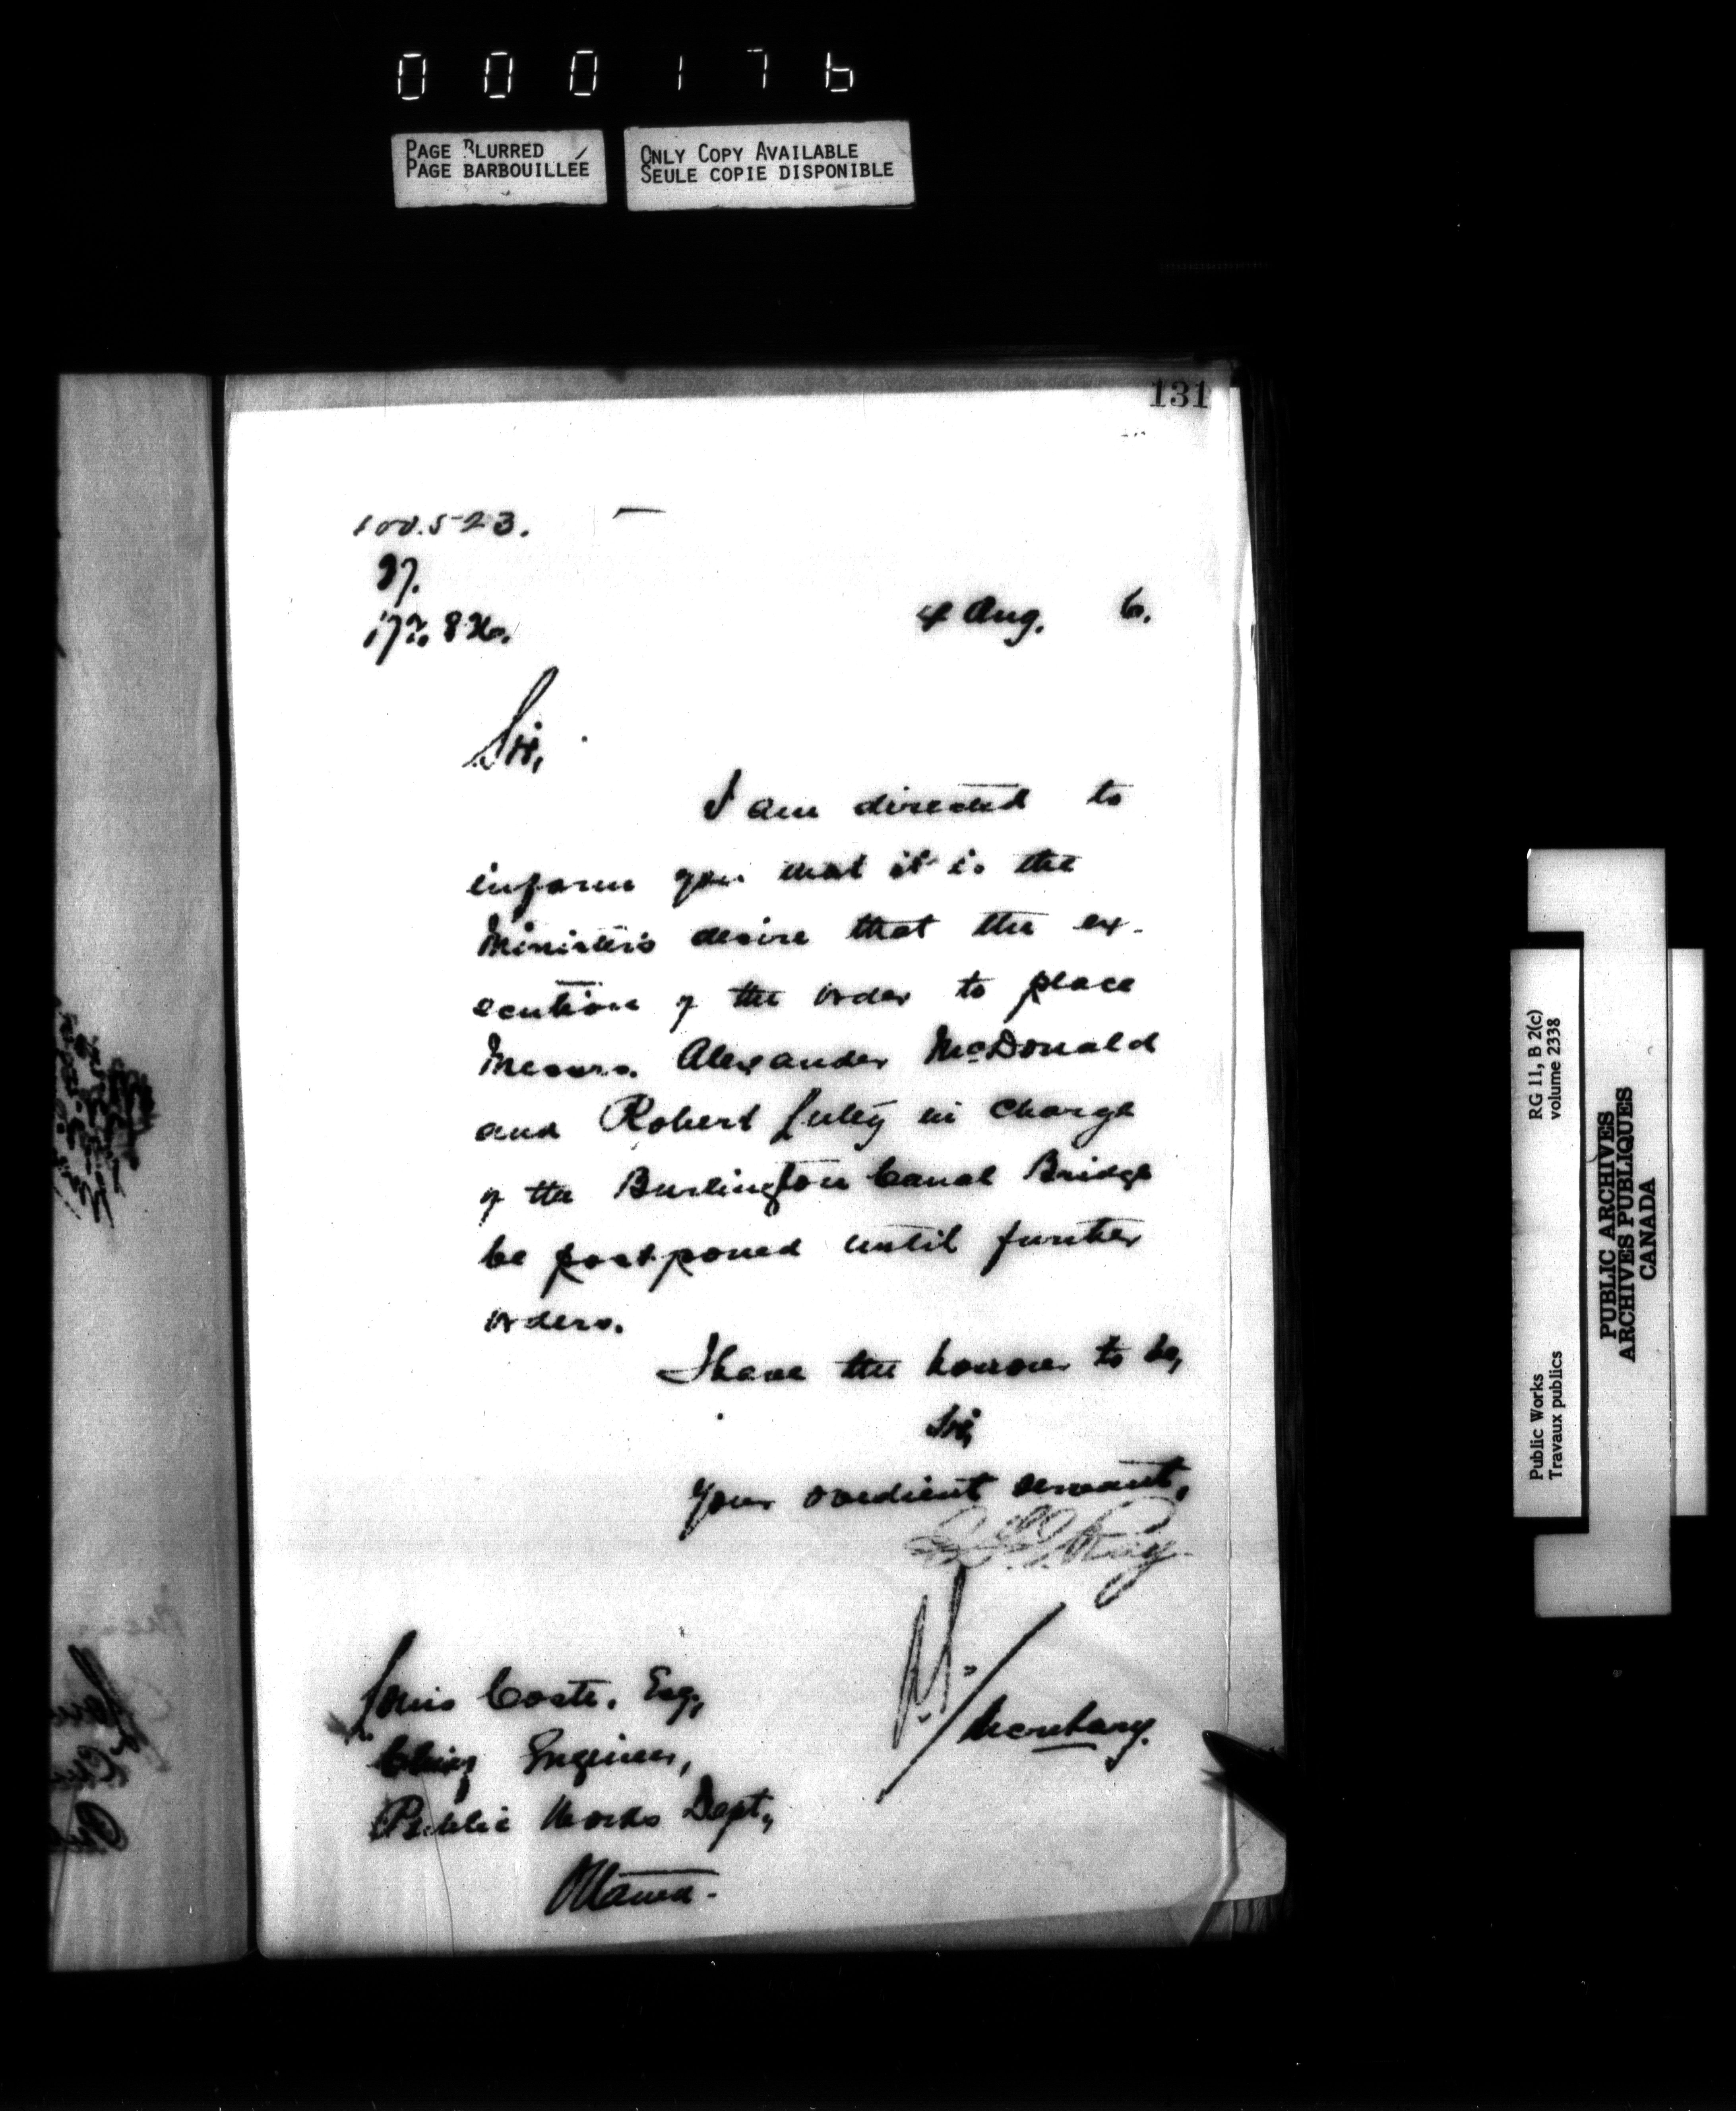 000176
PAGE BLURRED
PAGE BARBOUILLÉE
ONLY COPY AVAILABLE
SEULE COPIE DISPONIBLE
131
100.523.
97.
172.826.
4 Aug. 6.
Sir,
I am directed to
inform you that it is the
Minister's desire that the ex-
ecution of the order to place
Messrs. Alexander McDonald
and Robert in charge
of the Burlington Canal Bridge
be postponed until further
orders.
I have the honour to be,
Sir,
Your obedient servant,
Roy
Secretary.
Louis Coste, Esq.,
Chief Engineer,
Public Works Dept.,
Ottawa.
Public Works
Travaux publics
RG 11, B 2(c)
volume 2338
PUBLIC ARCHIVES
ARCHIVES PUBLIQUES
CANADA